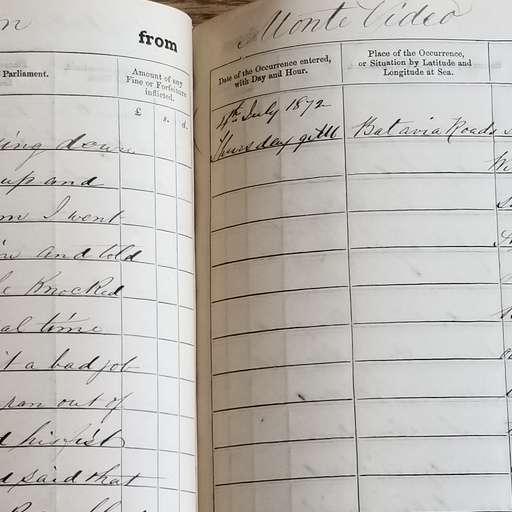 from
Parliament.
Amount of any
Fine or Forfeiture
inflicted.
£ s. d.
down
up and
I went
and told
Knocked
time
it a bad job
ran out of
his fist
said that
Monte Video
Date of the Occurrence entered,
with Day and Hour.
Place of the Occurrence,
or Situation by Latitude and
Longitude at Sea.
4th July 1872
Thursday
Batavia Roads